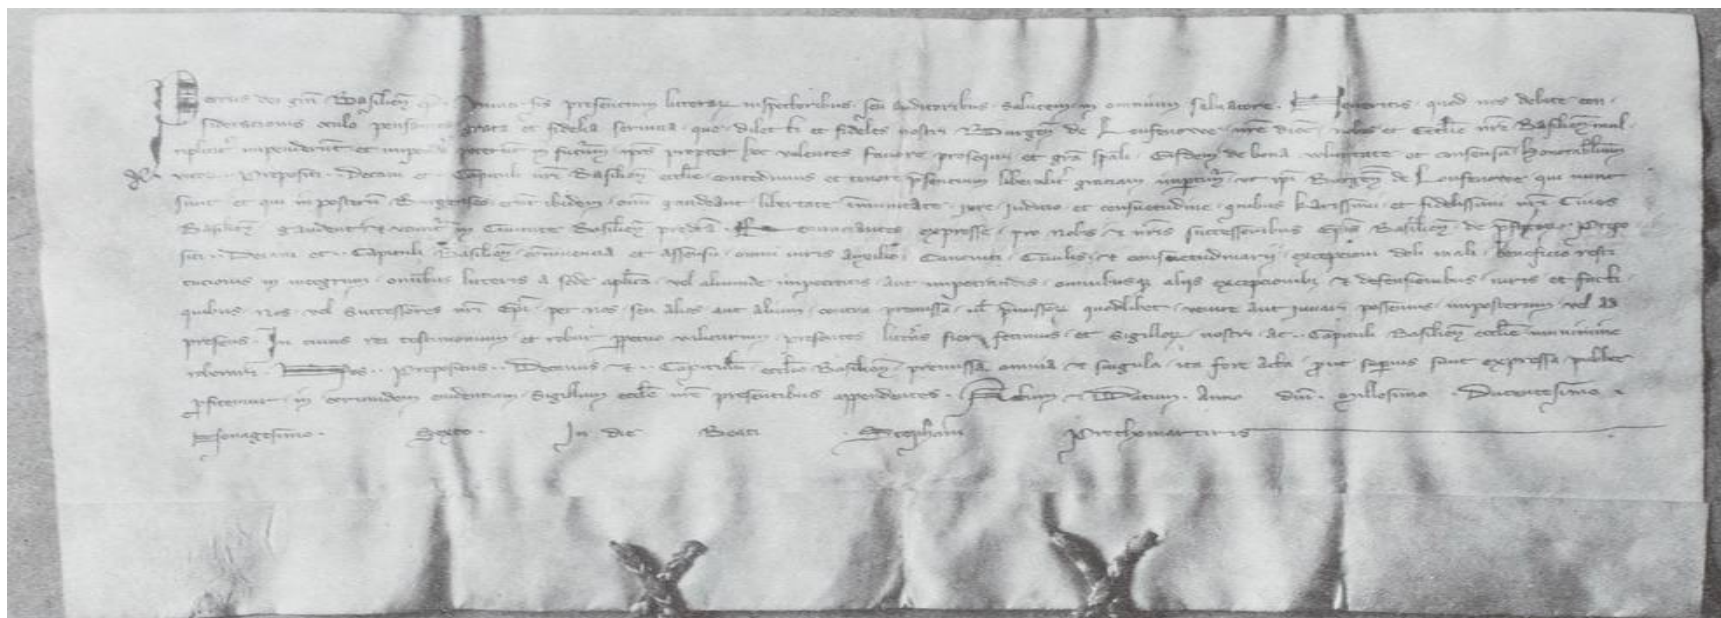 Petrus dei grã Basilieñ ep̃ Univ̾sis presentium litterarꝝ inspectoribus seu auditoribus salutem in omnium salvatore. Noveritis quod nos debite con
siderationis oculo pensantes grata et fidelia servicia que dilecti et fideles nostri Burgeñ de Loufenowe nr̃e dioc̃ nobis et Eccl̃ie nr̃e Basilieñ mul
tiplicit̾ impenderũt et impend̾e poterũt in futurũ ip̃os propter hoc volentes favore prosequi et grã sp̃ali Eisdem de bona voluntate et consensu honorabilium
viror̃ Prepositi Decani et Capituli nr̃i Basilieñ eccl̃ie concedimus et tenore p̃sentium liberalit̾ graciam impertim̾ ut ip̃i Burgeñ de Loufenowe qui nunc
sunt et qui in posterũ Burgenses erũt ibidem om̃i gaudeant libertate em̃unitate iure iudicio et consuetudine quibus karissimi et fidelissimi nr̃i Cives
Basilieñ gaudent et utunt̾ in Civitate Basilieñ pred̃ca Renunciantes expresse pro nobis et nr̃is successoribus Ep̃is Basilieñ de p̃fator̃ Prepo
siti Decani et Capituli Basilieñ conniventia et assensu omni iuris auxilio Canonici Civilis et consuetudinarii exceptioni doli mali beneficio resti
tucionis in integrum omnibus litteris a sede ap̃lica vel aliunde impetratis aut impetrandis omnibusqꝫ aliis exceptionibꝫ et defensionibus iuris et facti
quibus nos vel successores nr̃i Ep̃i per nos seu alios aut alium contra premissa vel p̃missorꝝ quodlibet venire aut iuvari possemus imposterum vel ad
presens In cuius rei testimonium et robur ꝑpetuo valiturum presentes litt̾as fieri fecimus et Sigillorꝝ nostri ac Capituli Basilieñ eccl̃ie munimine
roborari Nos Prepositus Decanus et Capitulũ eccl̃ie Basilieñ premissa omnia et singula ita fore acta ꝓut sup̾ius sunt expressa publice
ꝓfitemur in eorundem evidentiam Sigillum eccl̃ie nr̃e presentibus appendentes Actum et Datum Anno Dñi Millesimo Ducentesimo
Nonagesimo Sexto In die Beati Stephani Prothomartiris